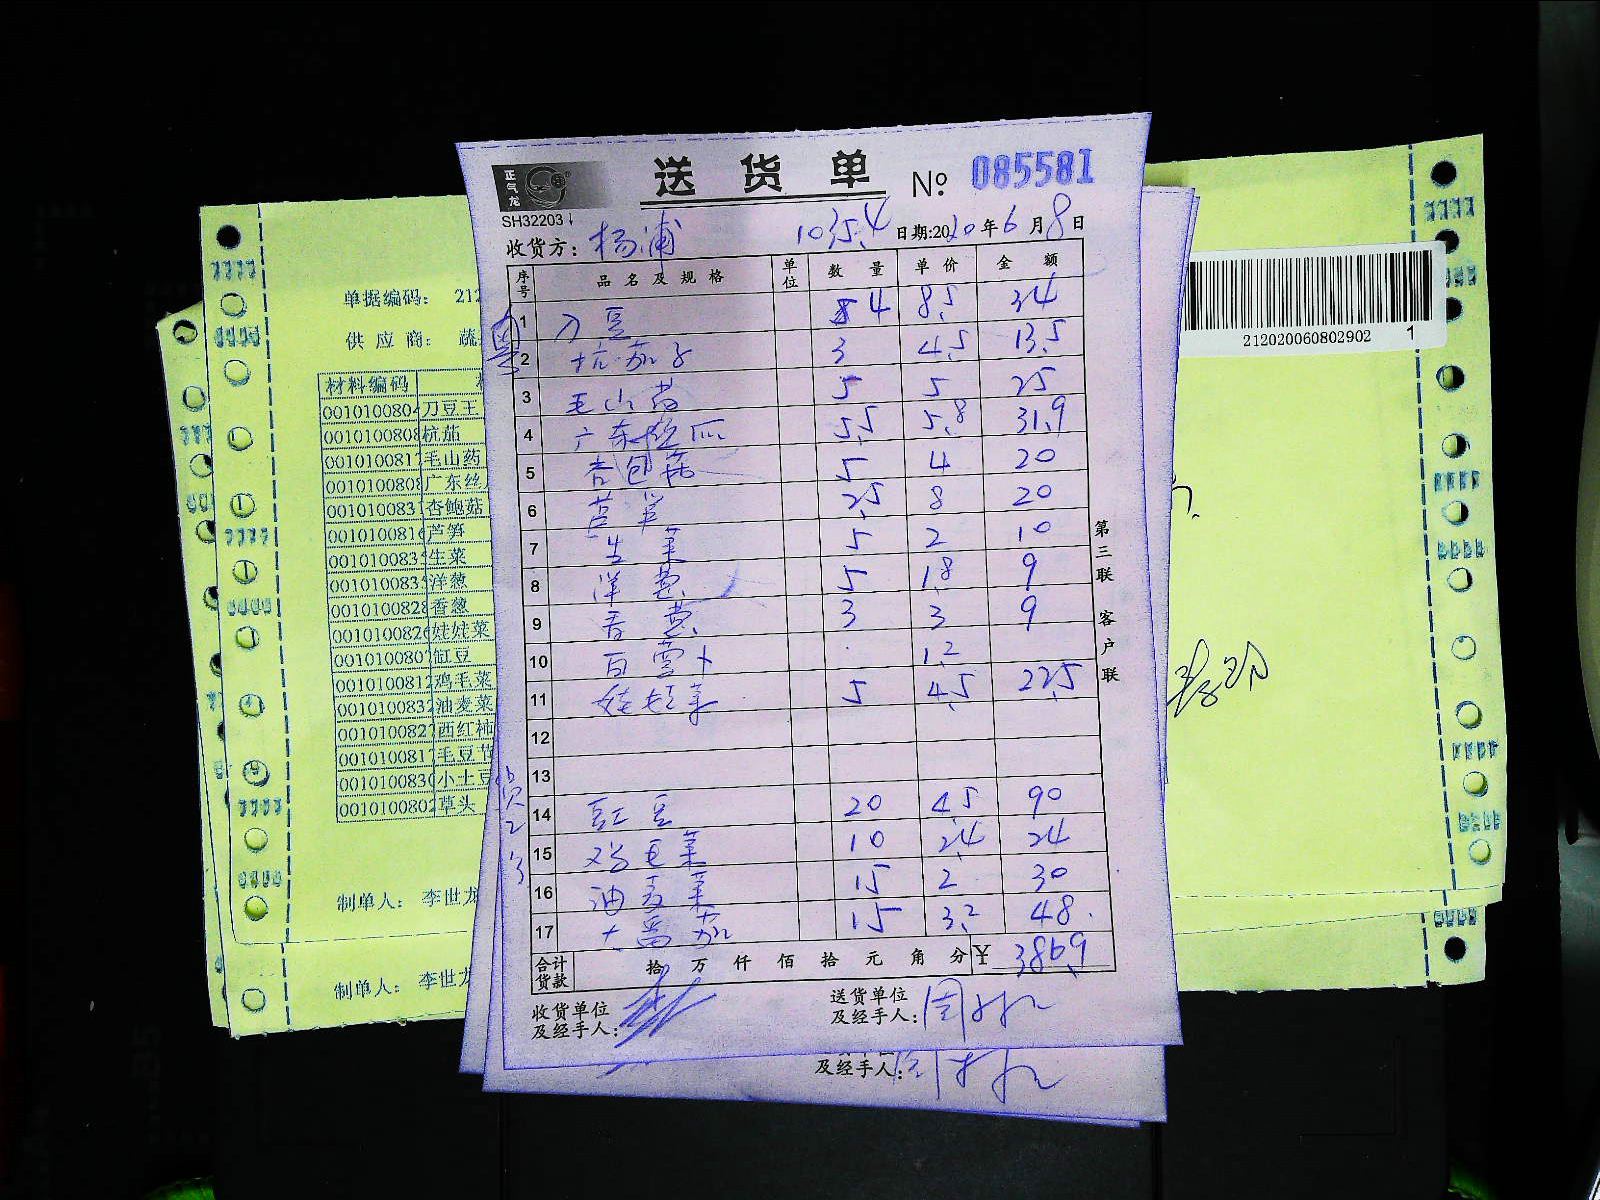 正气龙
送货单 № 085581
SH32203
收货方：杨浦 1035.4 日期:2020年6月8日
序号 品名及规格 单位 数量 单价 金额
1 刀豆 4 8.5 34
2 杭茄子 3 4.5 13.5
3 毛山药 5 5 25
4 广东丝瓜 5.5 5.8 31.9
5 杏包菇 5 4 20
6 芦笋 2.5 8 20
7 生菜 5 2 10
8 洋葱 5 1.8 9
9 香葱 3 3 9
10 白萝卜 1.2
11 娃娃菜 5 4.5 22.5
12
13
14 豇豆 20 4.5 90
15 鸡毛菜 10 2.4 24
16 油麦菜 15 2 30
17 大番茄 15 3.2 48
合计货款 拾万仟佰拾元角分 ¥ 386.9
收货单位及经手人：
送货单位及经手人：
第三联 客户联
货2号
及经手人：
单据编码： 212
供应商： 蔬
材料编码
001010080 刀豆王
0010100808 杭茄
001010081 毛山药
0010100808 广东丝
001010083 杏鲍菇
001010081 芦笋
001010083 生菜
001010083 洋葱
0010100828 香葱
001010082 娃娃菜
001010080 缸豆
001010081 鸡毛菜
001010083 油麦菜
001010082 西红柿
001010081 毛豆节
001010083 小土豆
001010080 草头
制单人： 李世龙
制单人： 李世龙
212020060802902 1